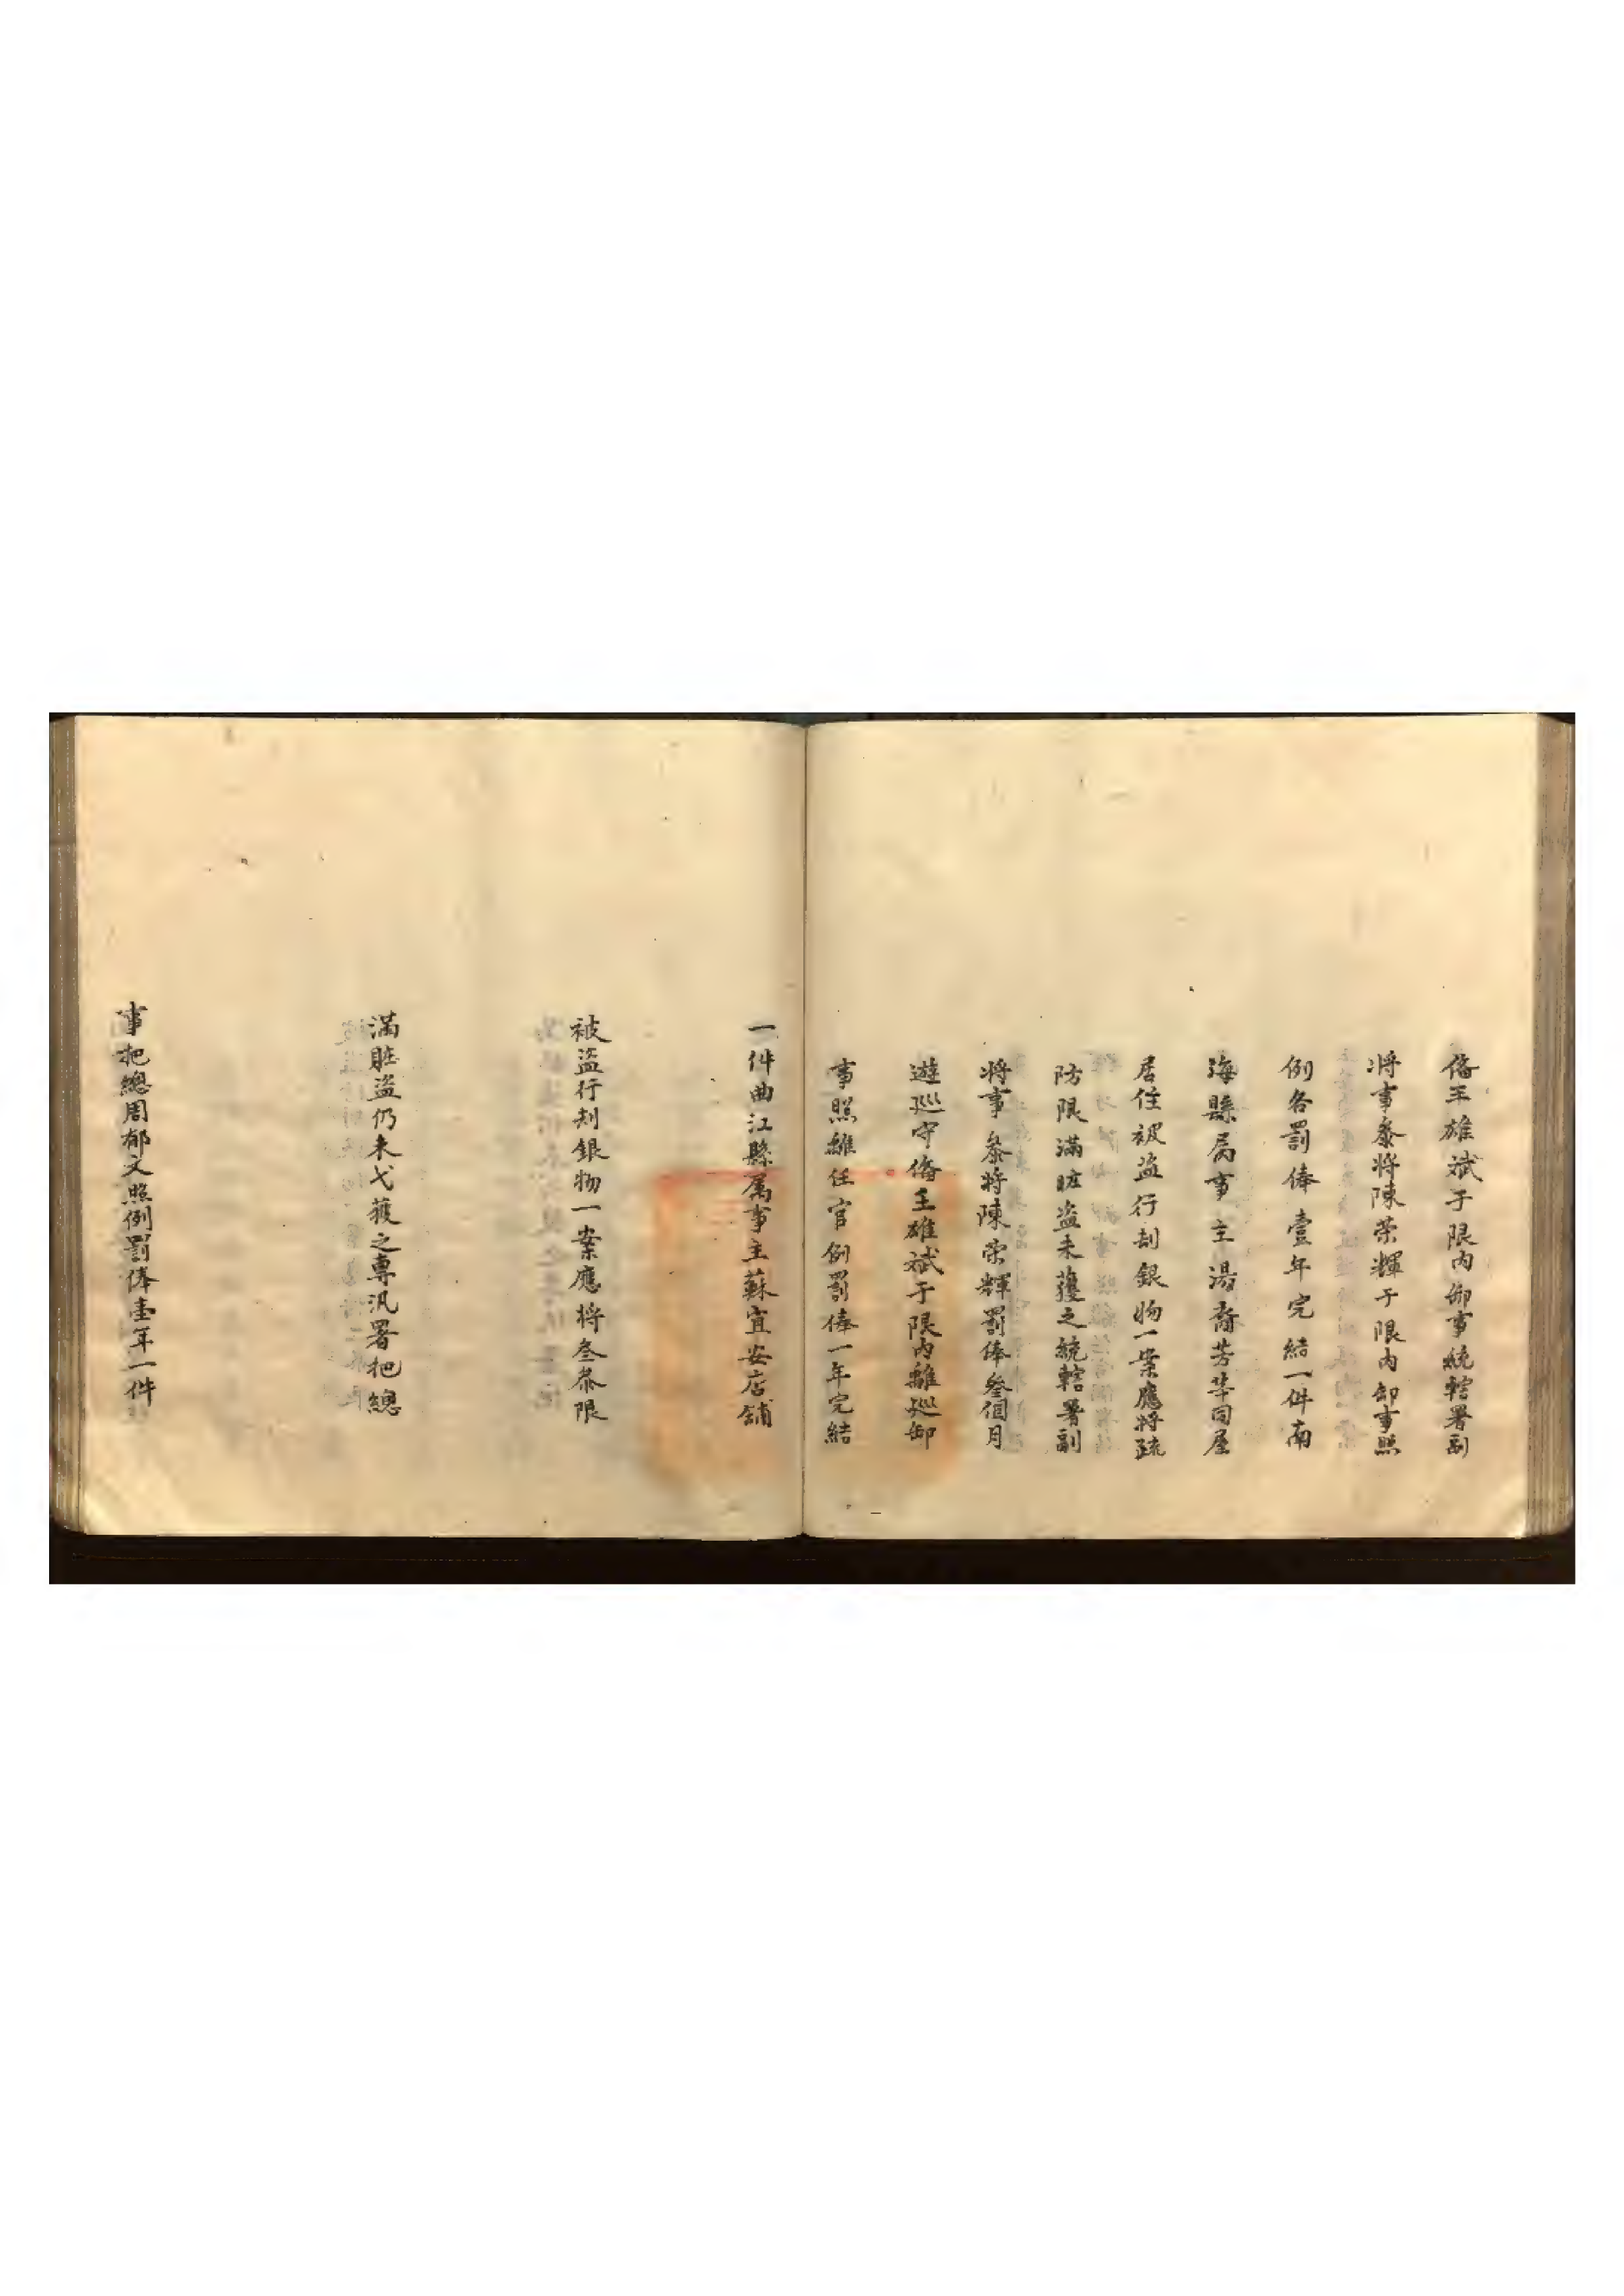 俻王雄斌于限内卸事統轄署副
将事叅将陳荣輝于限内卸事照
例各罰俸壹年完結一件南
海縣属事主湯裔芳等同屋
居住被盗行刦銀物一案應将疏
防限滿賍盗未獲之統轄署副
将事叅将陳荣輝罰俸叁個月
遊巡守俻王雄斌于限内離巡卸
事照離任官例罰俸一年完結
一件曲江縣属事主蘇宜安店舖
被盗行刦銀物一案應将叁叅限
滿賍盗仍未弋獲之專汛署把總
事把總周郁文照例罰俸壹年一件